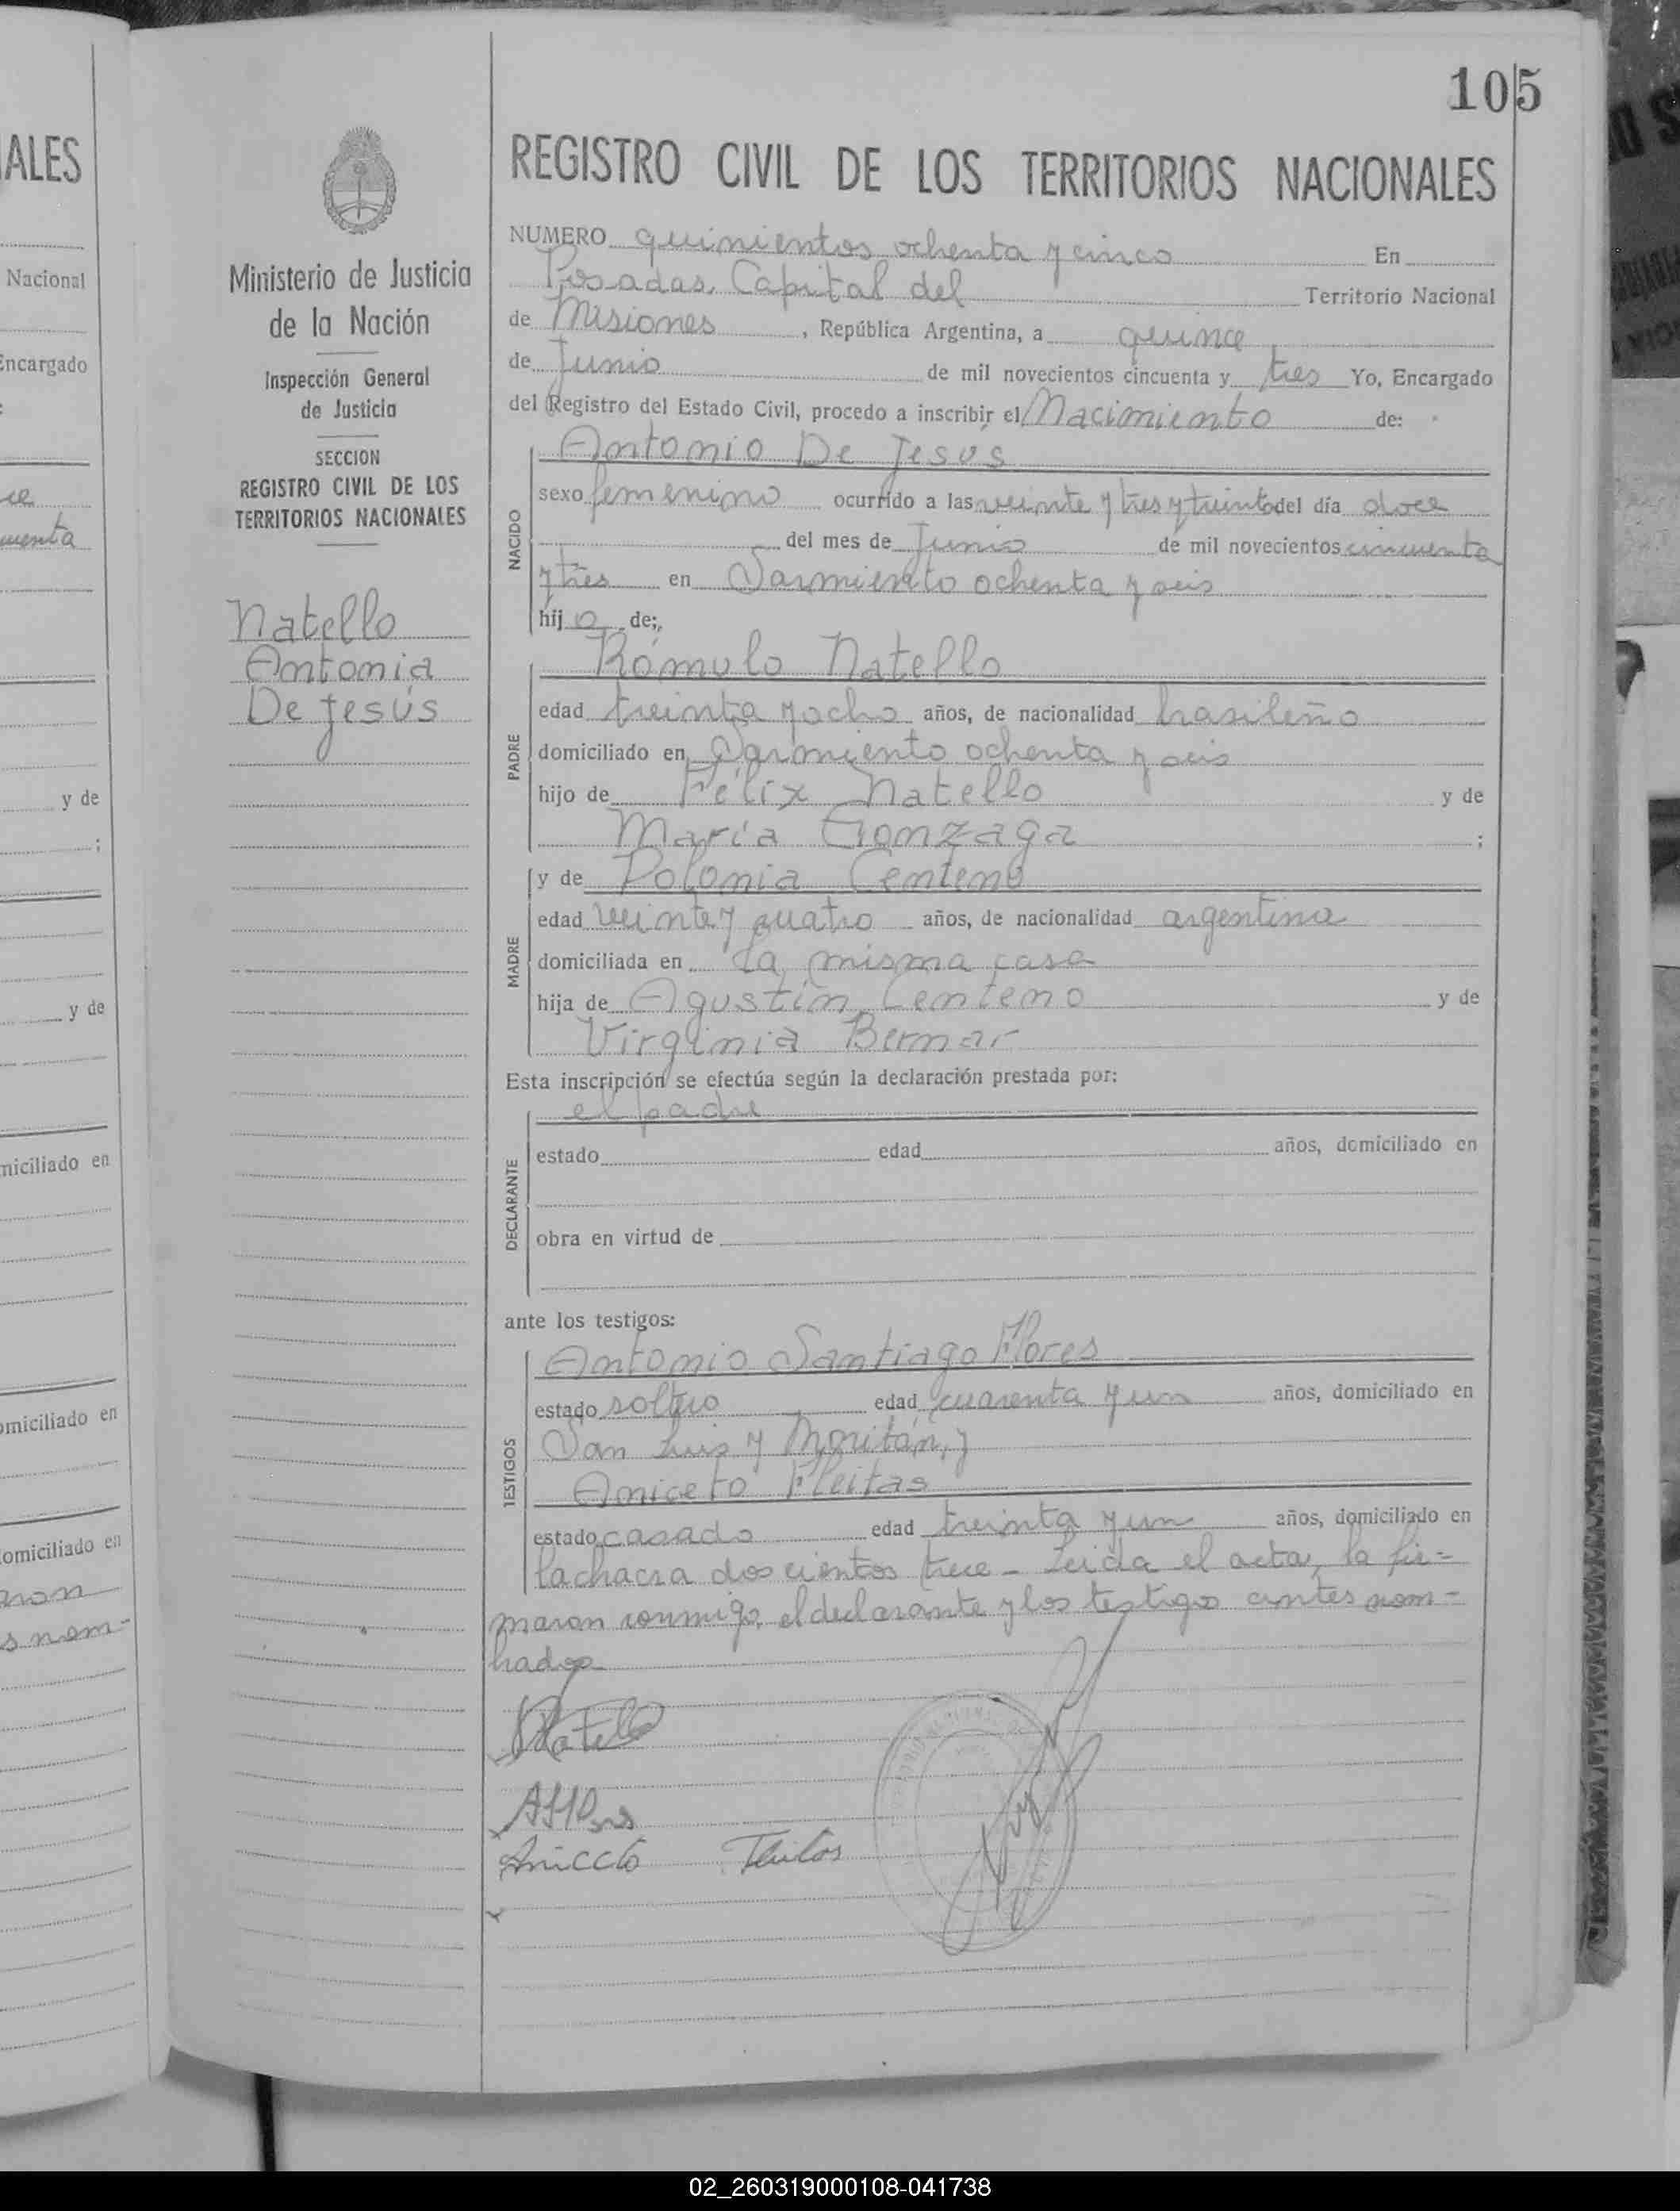 105
ALES
Nacional
Encargado
y de
y de
miciliado en
omiciliado en
omiciliado en
s nom-
Ministerio de Justicia
de la Nación
Inspección General
de Justicia
SECCION
REGISTRO CIVIL DE LOS
TERRITORIOS NACIONALES
Natello
Antonia
De Jesús
REGISTRO CIVIL DE LOS TERRITORIOS NACIONALES
NUMERO quinientos ochenta y cinco En
Posadas, Capital del Territorio Nacional
de Misiones, República Argentina, a quince
de Junio de mil novecientos cincuenta y tres Yo, Encargado
del Registro del Estado Civil, procedo a inscribir el Nacimiento de:
NACIDO
Antonio De Jesús
sexo femenino ocurrido a las veinte y tres y treinta del día doce
del mes de Junio de mil novecientos cincuenta
y tres en Sarmiento ochenta y seis
hija de:
PADRE
Rómulo Natello
edad treinta y ocho años, de nacionalidad brasileño
domiciliado en Sarmiento ochenta y seis
hijo de Félix Natello y de
María Gonzaga ;
MADRE
y de Polonia Centeno
edad veinte y cuatro años, de nacionalidad argentina
domiciliada en la misma casa
hija de Agustín Centeno y de
Virginia Bernar
Esta inscripción se efectúa según la declaración prestada por:
DECLARANTE
el padre
estado edad años, domiciliado en
obra en virtud de
ante los testigos:
TESTIGOS
Antonio Santiago Flores
estado soltero edad cuarenta y un años, domiciliado en
San Luis y Moritán, y
Aniceto Fleitas
estado casado edad treinta y un años, domiciliado en
la chacra dos cientos trece - Leida el acta, la fir-
maron conmigo, el declarante y los testigos antes nom-
brados
RNatello
Aniceto Fleitas
02_260319000108-041738